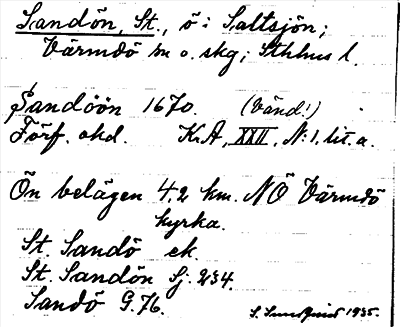 Sandön, St., ö i Saltsjön;
Värmdö sn o. skg; Sthlms l.
Sandöön 1670. (Vänd!)
Förf. okd. K.A., XXII, N:1, lit. a.
Ön belägen 4,2 km. NÖ Värmdö
kyrka.
St. Sandö ek.
St. Sandön Sj. 234.
Sandö G. 76.
S. Sundquist 1935.